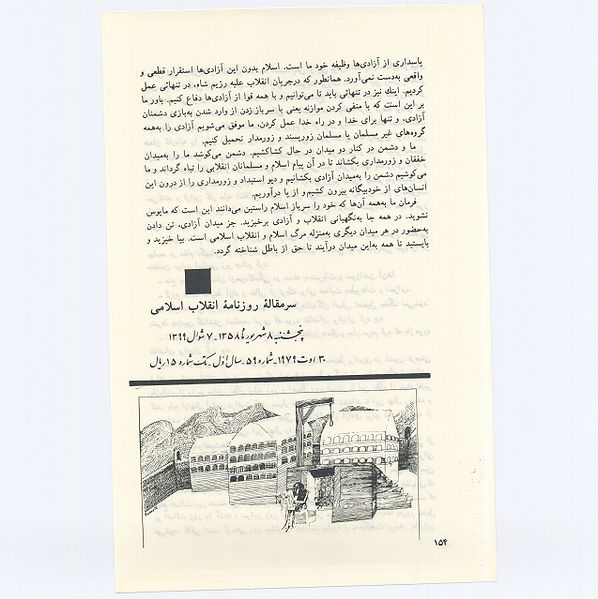 پاسداری از آزادی‌ها وظیفه خود ما است. اسلام بدون این آزادی‌ها استقرار قطعی و
واقعی به‌دست نمی‌آورد. همانطور که درجریان انقلاب علیه رژیم شاه، در تنهائی عمل
کردیم. اینك نیز در تنهائی باید تا می‌توانیم و با همه قوا از آزادی‌ها دفاع کنیم. باور ما
بر این است که با منفی کردن موازنه یعنی با سرباز زدن از وارد شدن به‌بازی دشمنان
آزادی، و تنها برای خدا و در راه خدا عمل کردن، ما موفق می‌شویم آزادی را به‌همه
گروه‌های غیر مسلمان یا مسلمان زورپسند و زورمدار تحمیل کنیم.
ما و دشمن در کنار دو میدان در حال کشاکشیم. دشمن می‌کوشد ما را به‌میدان
خفقان و زورمداری بکشاند تا در آن پیام اسلام و مسلمانان انقلابی را تباه گرداند و ما
می‌کوشیم دشمن را به‌میدان آزادی بکشانیم و دیو استبداد و زورمداری را از درون این
انسان‌های از خودبیگانه بیرون کشیم و از پا درآوریم.
فرمان ما به‌همه آن‌ها که خود را سرباز اسلام راستین می‌دانند این است که مایوس
نشوید. در همه جا به‌نگهبانی انقلاب و آزادی برخیزید. جز میدان آزادی، تن دادن
به‌حضور در هر میدان دیگری به‌منزله مرگ اسلام و انقلاب اسلامی است. بپا خیزید و
بایستید تا همه به‌این میدان درآیند تا حق از باطل شناخته گردد.
سرمقالهٔ روزنامهٔ انقلاب اسلامی
پنجشنبه ۸ شهریورماه ۱۳۵۸ - ۷ شوال ۱۳۹۹
۳۰ اوت ۱۹۷۹ - شماره ۵۹ - سال اول - تکشماره ۱۵ ریال
۱۵۴